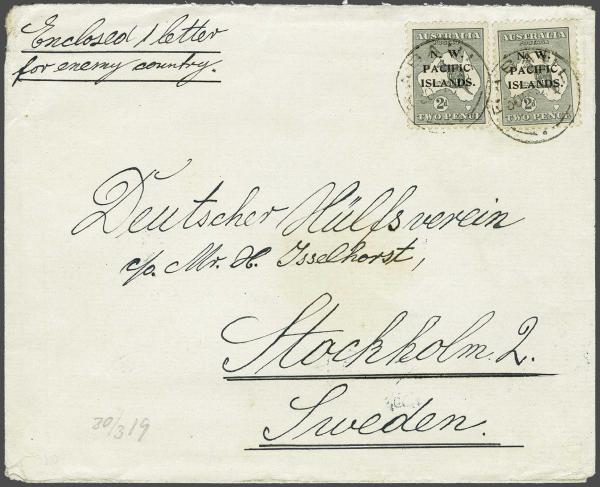 Enclosed 1 letter
for enemy country.
AUSTRALIA
POSTAGE
N. W.
PACIFIC
ISLANDS.
2d
TWO PENCE
AUSTRALIA
POSTAGE
N. W.
PACIFIC
ISLANDS.
2d
TWO PENCE
Deutscher Hülfsverein
c/o. Mr. H. Isselhorst,
Stockholm 2.
Sweden.
30/3 19